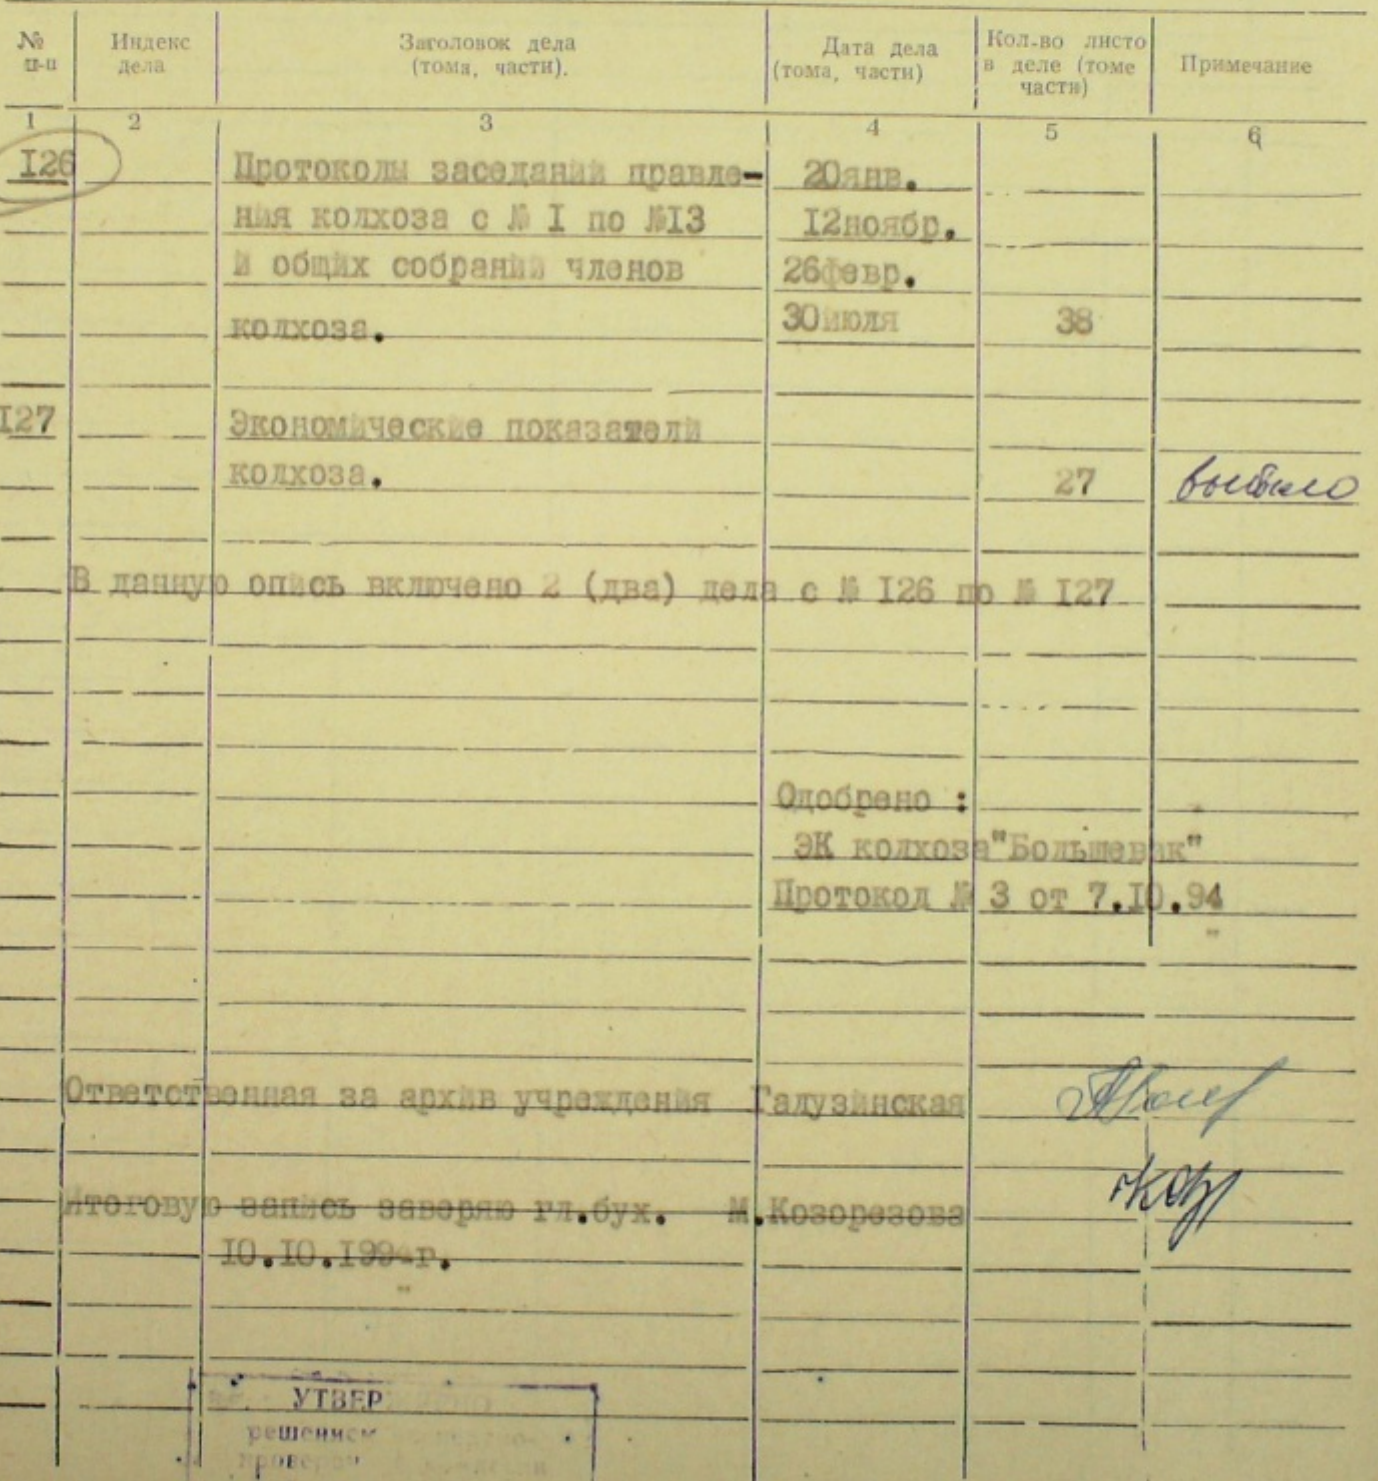 № п-п Индекс дела Заголовок дела (тома, части). Дата дела (тома, части) Кол-во листо в деле (томе части) Примечание
1 2 3 4 5 6
I26 Протоколы заседаний правле- 20янв.
ния колхоза с № I по №I3 I2ноябр.
и общих собраний членов 26февр.
колхоза. 30июля 38
I27 Экономические показатели
колхоза. 27 выбыло
В данную опись включено 2 (два) дела с № I26 по № I27
Одобрено :
ЭК колхоза"Большевик"
Протокол № 3 от 7.I0.94
Ответственная за архив учреждения Галузинская
Итоговую запись заверяю гл.бух. М.Козорезова
I0.I0.I994г.
УТВЕР
решением